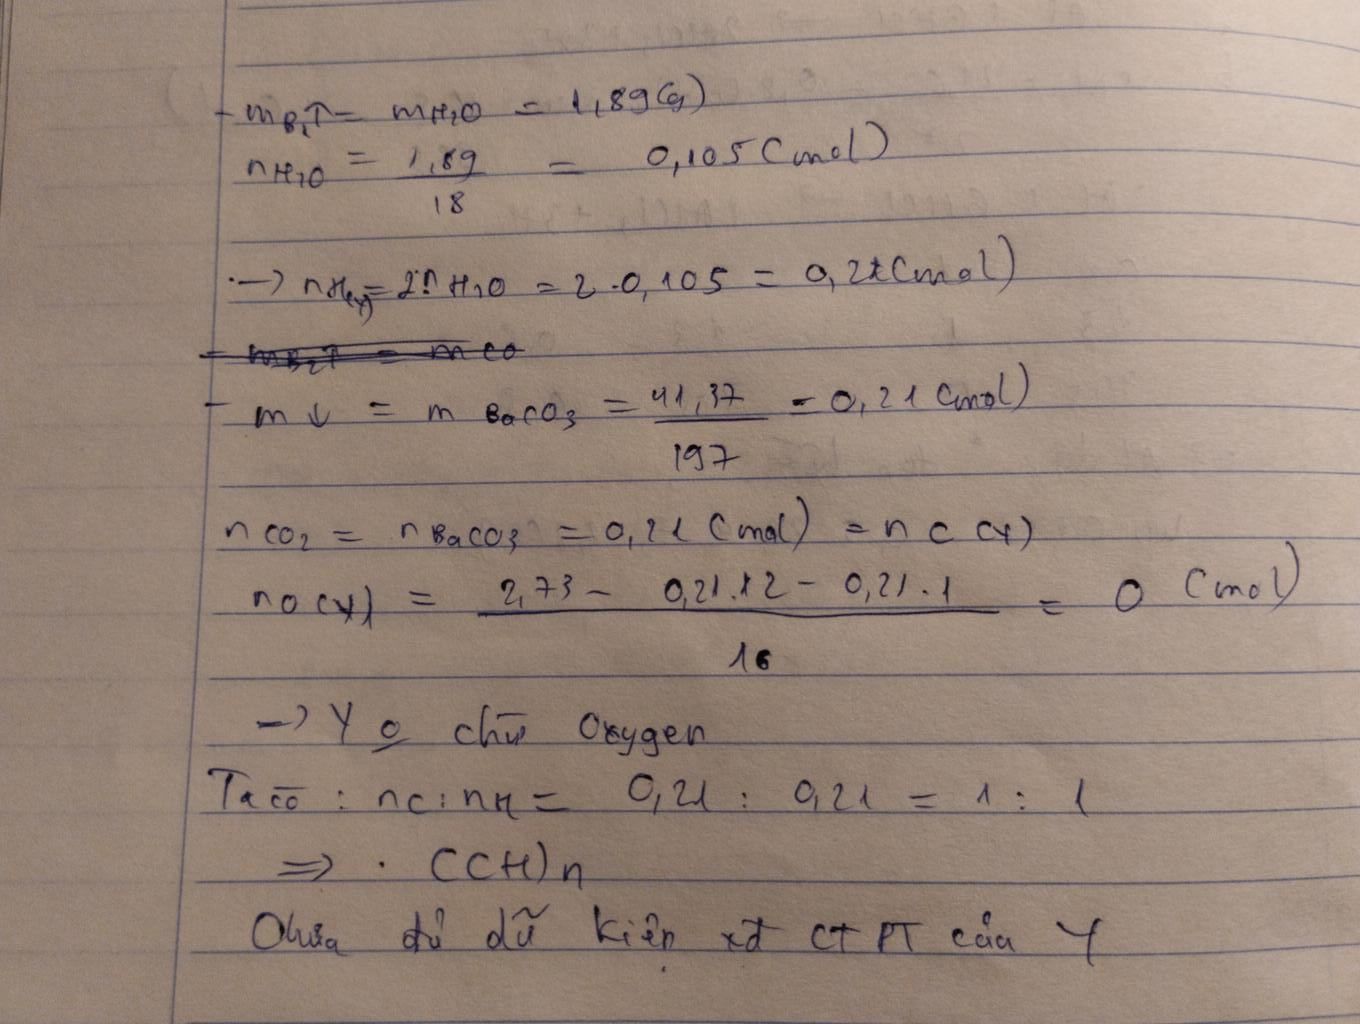 - mB₁↑ = mH₂O = 1,89(g)
nH₂O = 1,89/18 = 0,105 (mol)
→ nH(Y) = 2.nH₂O = 2.0,105 = 0,21(mol)
- mB₂↑ = mCO
- m↓ = mBaCO₃ = 41,37/197 = 0,21 (mol)
nCO₂ = nBaCO₃ = 0,21 (mol) = nC(Y)
nO(Y) = (2,73 - 0,21.12 - 0,21.1)/16 = 0 (mol)
→ Y o chứ Oxygen
Ta có : nC : nH = 0,21 : 0,21 = 1 : 1
⇒ . (CH)n
Chưa đủ dữ kiện xđ CTPT của Y